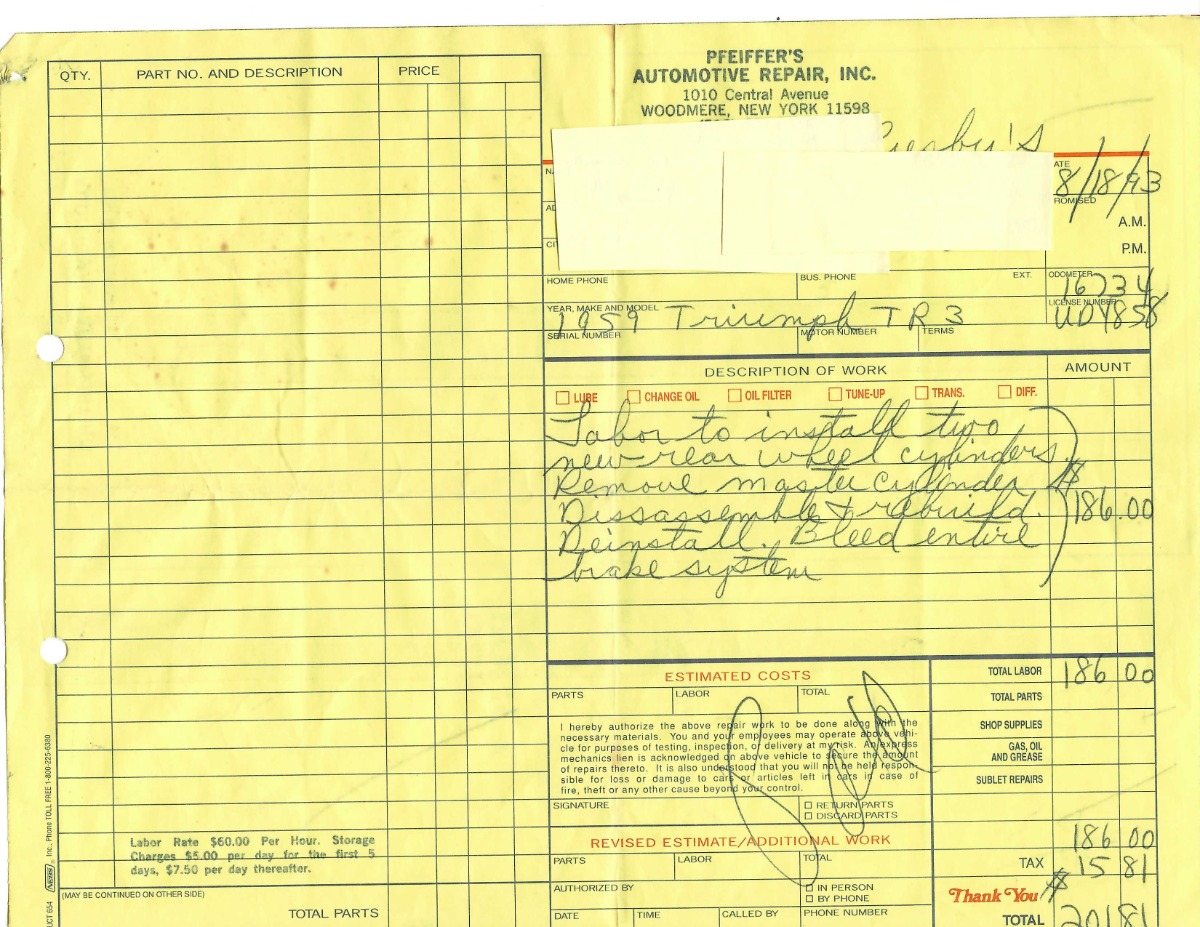 PFEIFFER'S
AUTOMOTIVE REPAIR, INC.
1010 Central Avenue
WOODMERE, NEW YORK 11598
QTY. PART NO. AND DESCRIPTION PRICE
8/18/93
A.M.
P.M.
HOME PHONE BUS. PHONE EXT. ODOMETER
16734
YEAR, MAKE AND MODEL LICENSE NUMBER
1959 Triumph TR3 UDY858
SERIAL NUMBER MOTOR NUMBER TERMS
DESCRIPTION OF WORK AMOUNT
LUBE CHANGE OIL OIL FILTER TUNE-UP TRANS. DIFF.
Labor to install two
new rear wheel cylinders.
Remove master cylinder $
Dissassemble & rebuild. 186.00
Reinstall. Bleed entire
brake system
ESTIMATED COSTS
PARTS LABOR TOTAL
I hereby authorize the above repair work to be done along with the
necessary materials. You and your employees may operate above vehi-
cle for purposes of testing, inspection, or delivery at my risk. An express
mechanics lien is acknowledged on above vehicle to secure the amount
of repairs thereto. It is also understood that you will not be held respon-
sible for loss or damage to cars or articles left in cars in case of
fire, theft or any other cause beyond your control.
SIGNATURE
RETURN PARTS
DISCARD PARTS
TOTAL LABOR 186 00
TOTAL PARTS
SHOP SUPPLIES
GAS, OIL
AND GREASE
SUBLET REPAIRS
186 00
TAX 15 81
Thank You $
TOTAL 201 81
REVISED ESTIMATE/ADDITIONAL WORK
PARTS LABOR TOTAL
AUTHORIZED BY
IN PERSON
BY PHONE
DATE TIME CALLED BY PHONE NUMBER
Labor Rate $60.00 Per Hour. Storage
Charges $5.00 per day for the first 5
days, $7.50 per day thereafter.
(MAY BE CONTINUED ON OTHER SIDE)
TOTAL PARTS
Inc., Phone TOLL FREE 1-800-225-6380